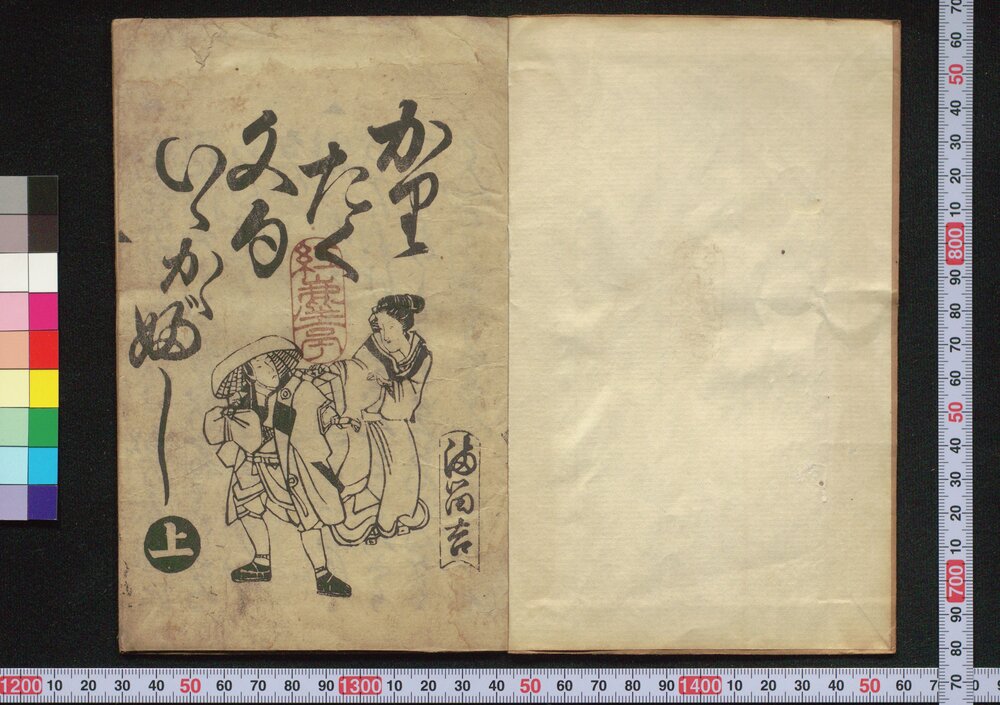 かり
たく
文句
いゝかへ
婦゛し
上
満留吉
1200 10 20 30 40 50 60 70 80 90 1300 10 20 30 40 50 60 70 80 90 1400 10 20 30 40 50 60
70 60 50 40 30 20 10 800 90 80 70 60 50 40 30 20 10 700 90 80 70